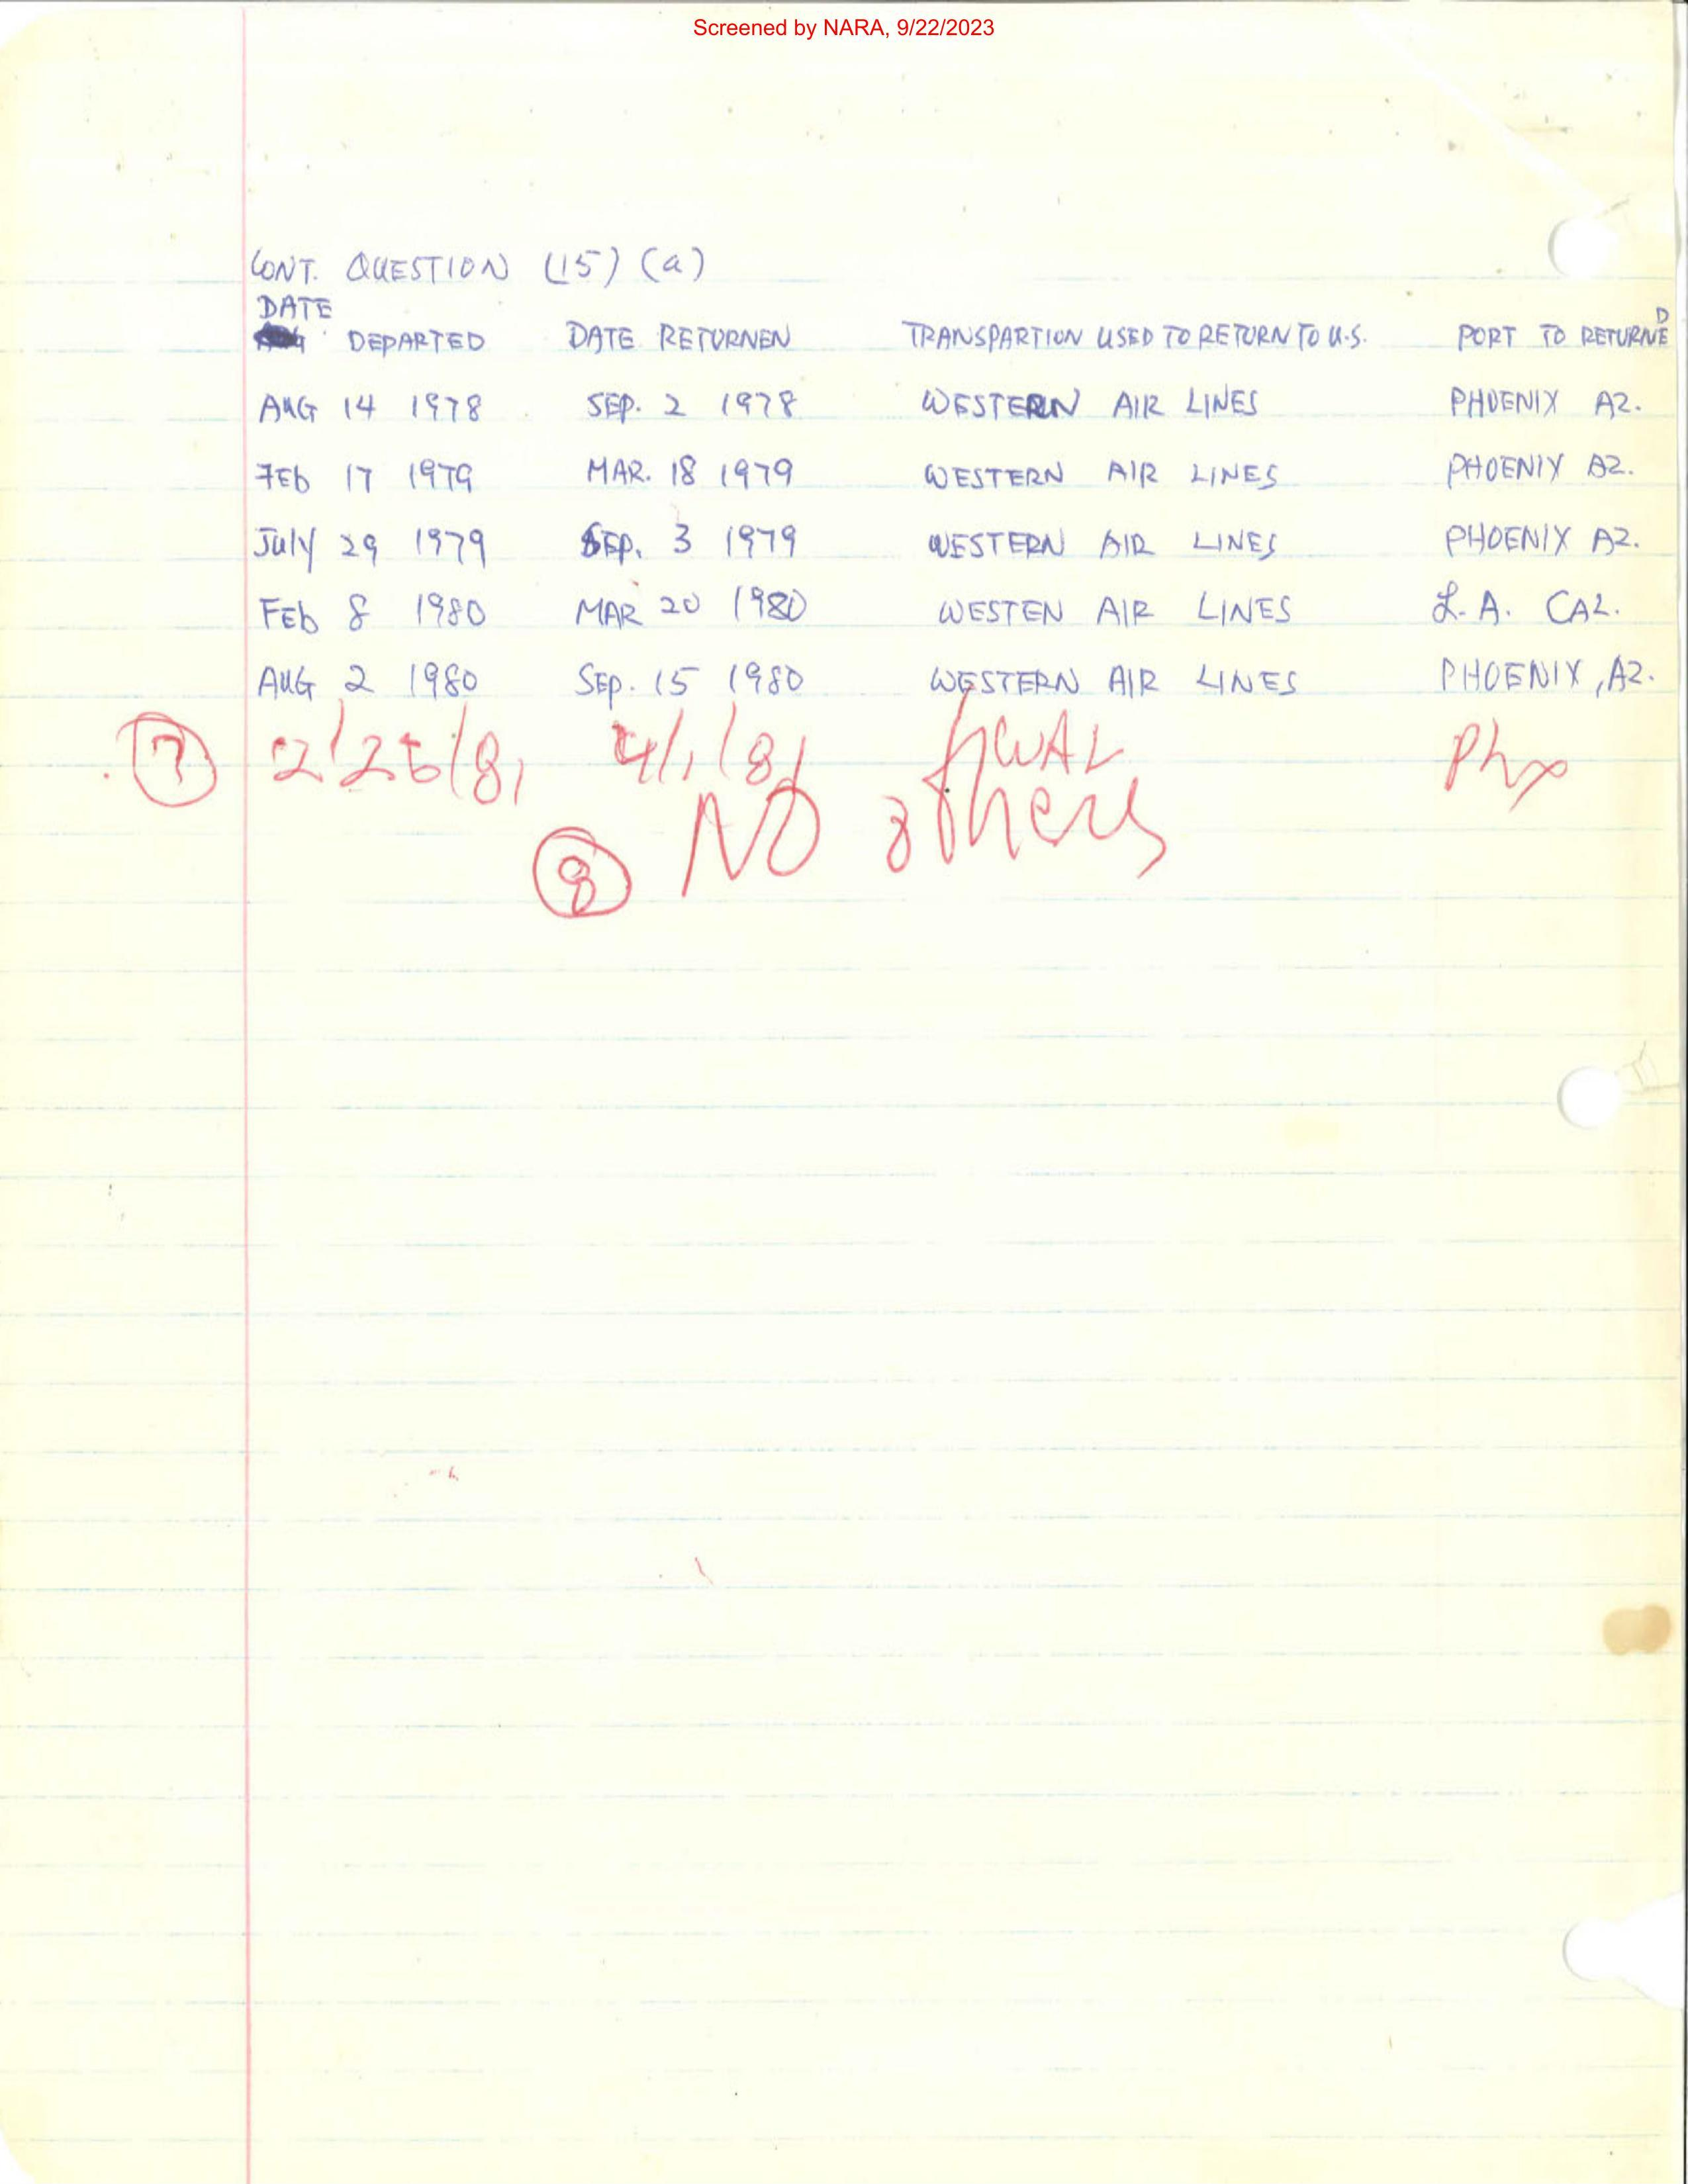 Screened by NARA, 9/22/2023
CONT. QUESTION (15) (a)
DATE
DEPARTED DATE RETURNEN TRANSPARTION USED TO RETURN TO U.S. PORT TO RETURNED
AUG 14 1978 SEP. 2 1978 WESTERN AIR LINES PHOENIX AZ.
FEb 17 1979 MAR. 18 1979 WESTERN AIR LINES PHOENIX AZ.
July 29 1979 SEP. 3 1979 WESTERN AIR LINES PHOENIX AZ.
FEb 8 1980 MAR 20 1980 WESTEN AIR LINES L.A. CAL.
AUG 2 1980 SEP. 15 1980 WESTERN AIR LINES PHOENIX, AZ.
7 4/1/81 WAL Phx
8 NO others